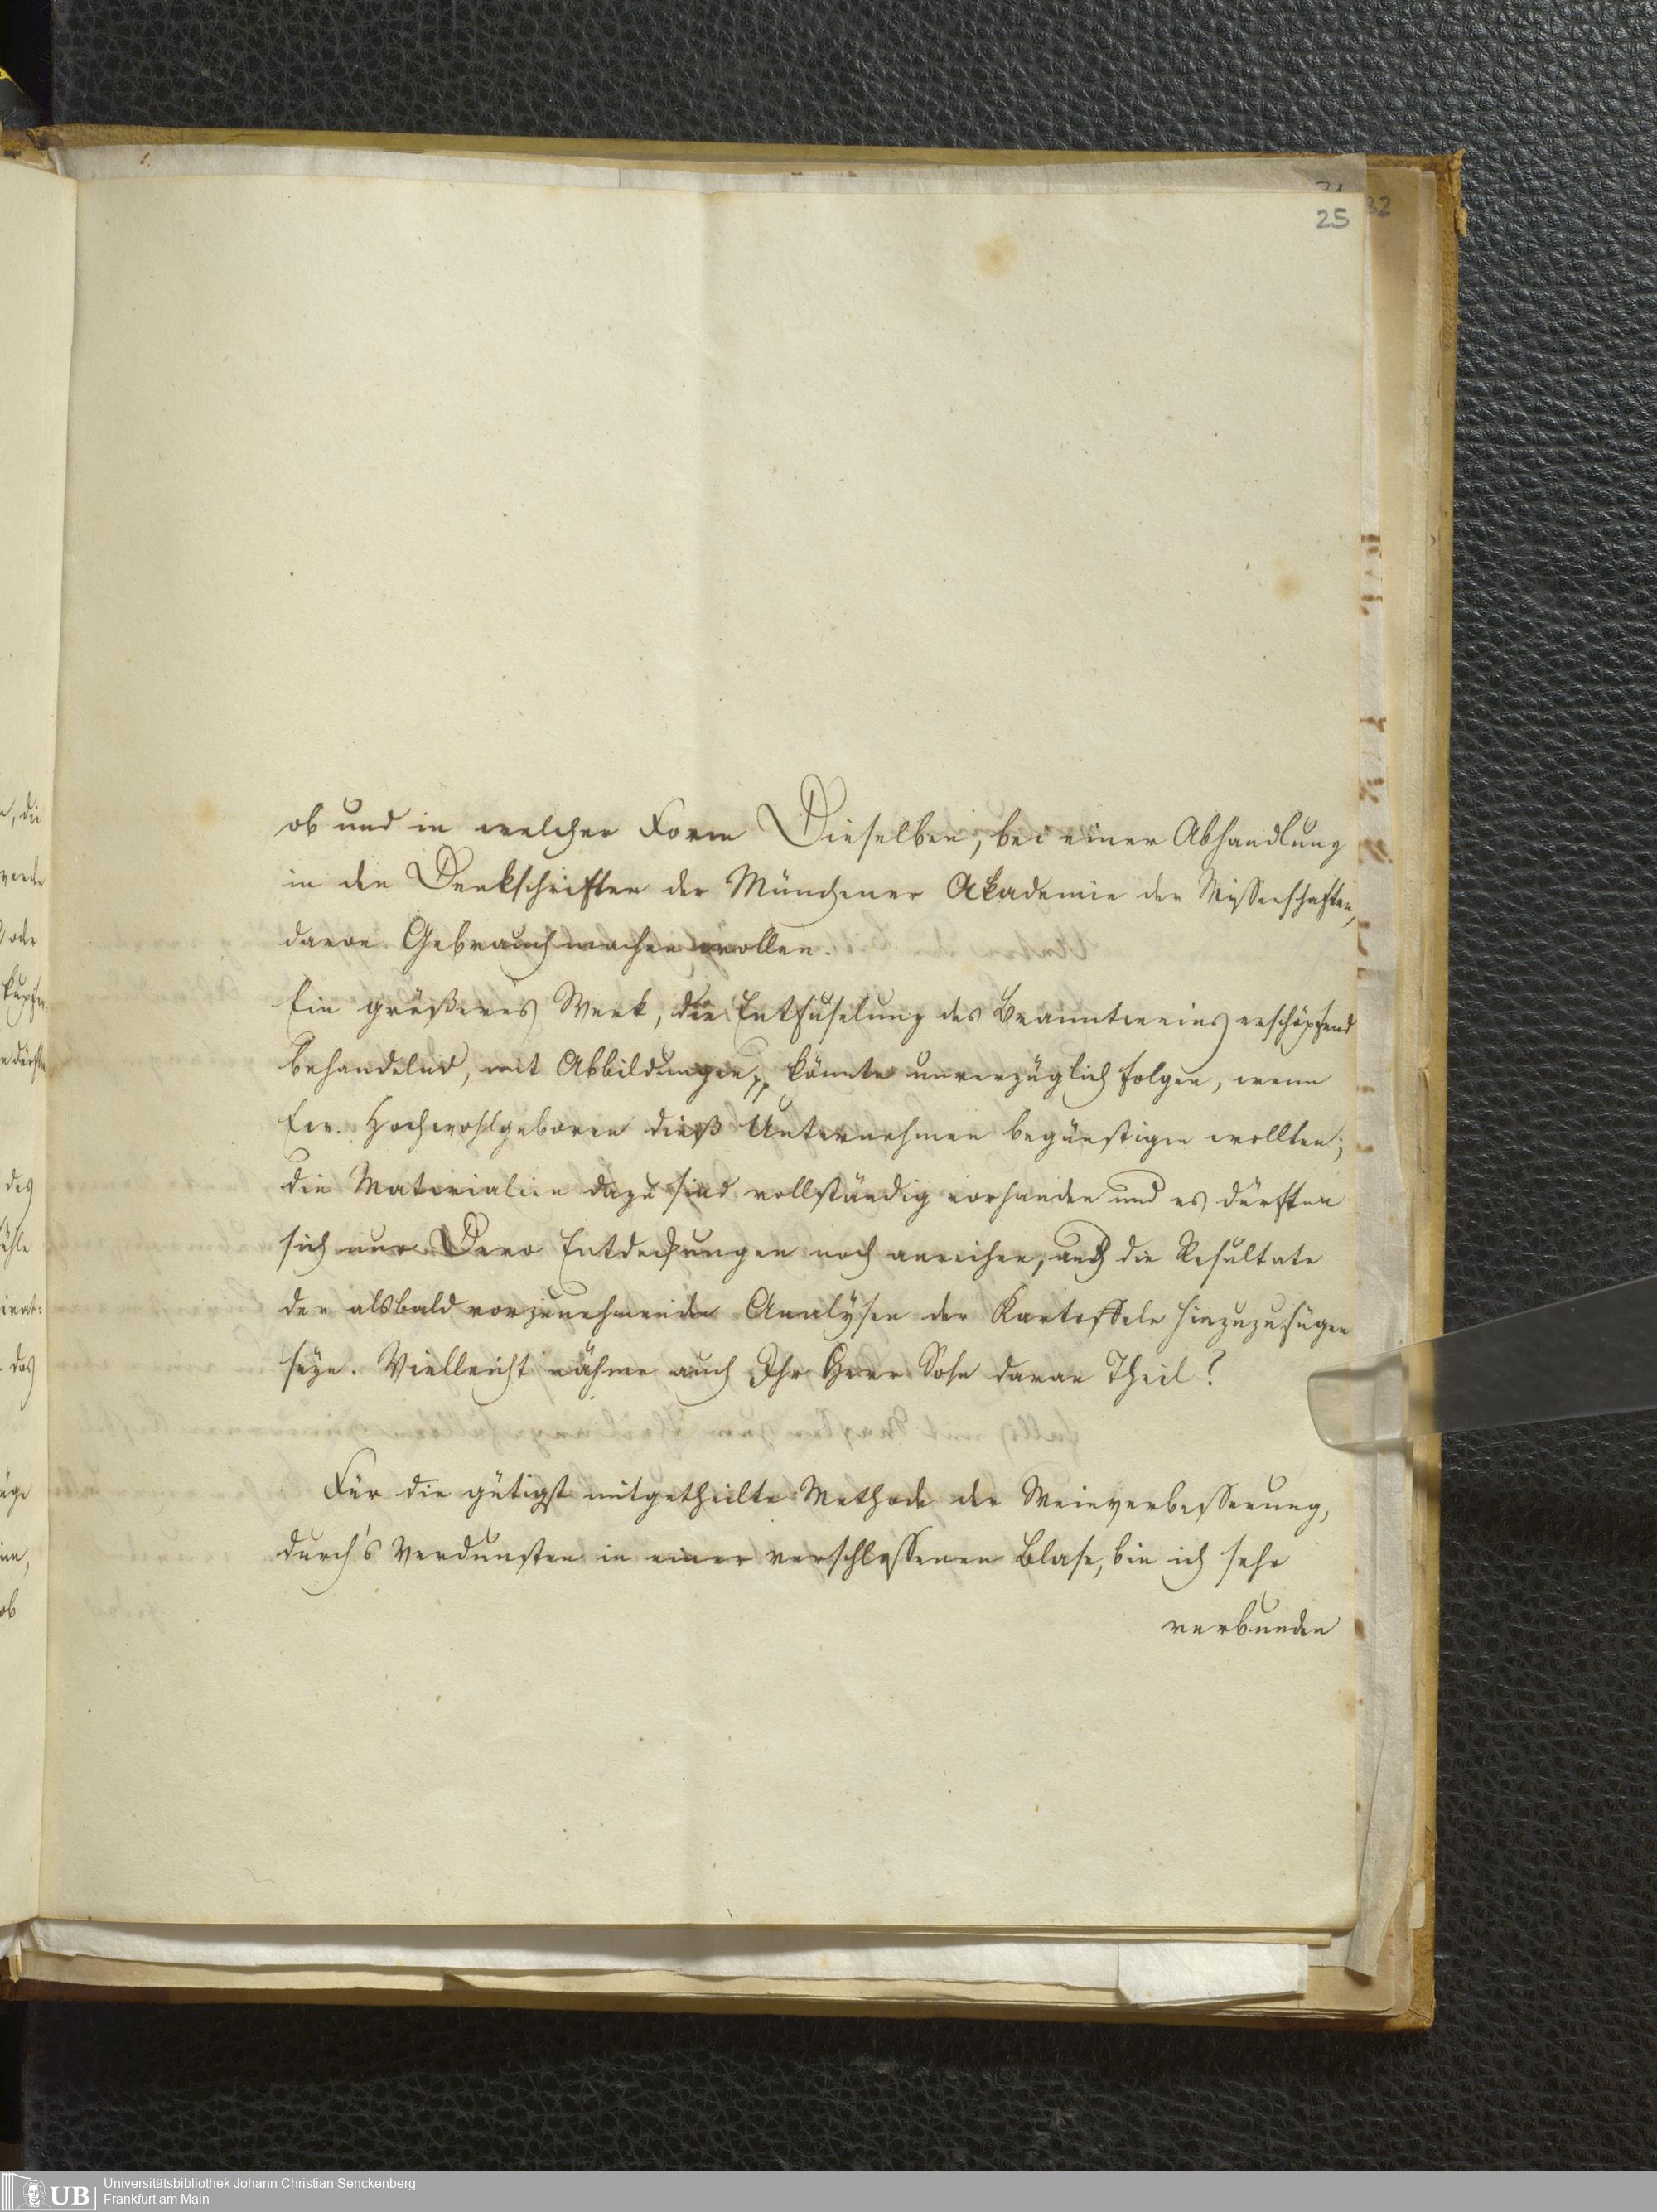 25
32
ob und in welcher Form Dieselben, bei einer Abhandlung
in den Denkschriften der Münchener Akademie der Wissenschaften,
davon Gebrauch machen wollen.
Ein größeres Werk, die Entfuselung des Branntweins erschöpfend
behandelnd, mit Abbildungen, könnte unverzüglich folgen, wenn
Ew. Hochwohlgeboren dieß Unternehmen begünstigen wollten;
die Materialien dazu sind vollständig vorhanden und es dürften
sich nur Dero Entdeckungen noch anreihen, auch die Resultate
der alsbald vorzunehmenden Analÿsen der Kartoffeln hinzuzufügen
seyn. Vielleicht nähme auch Ihr Herr Sohn daran Theil?
Für die gütigst mitgetheilte Methode der Weinverbesserung,
durch's Verdunsten in einer verschlossenen Blase, bin ich sehr
verbunden
UB
Universitätsbibliothek Johann Christian Senckenberg
Frankfurt am Main